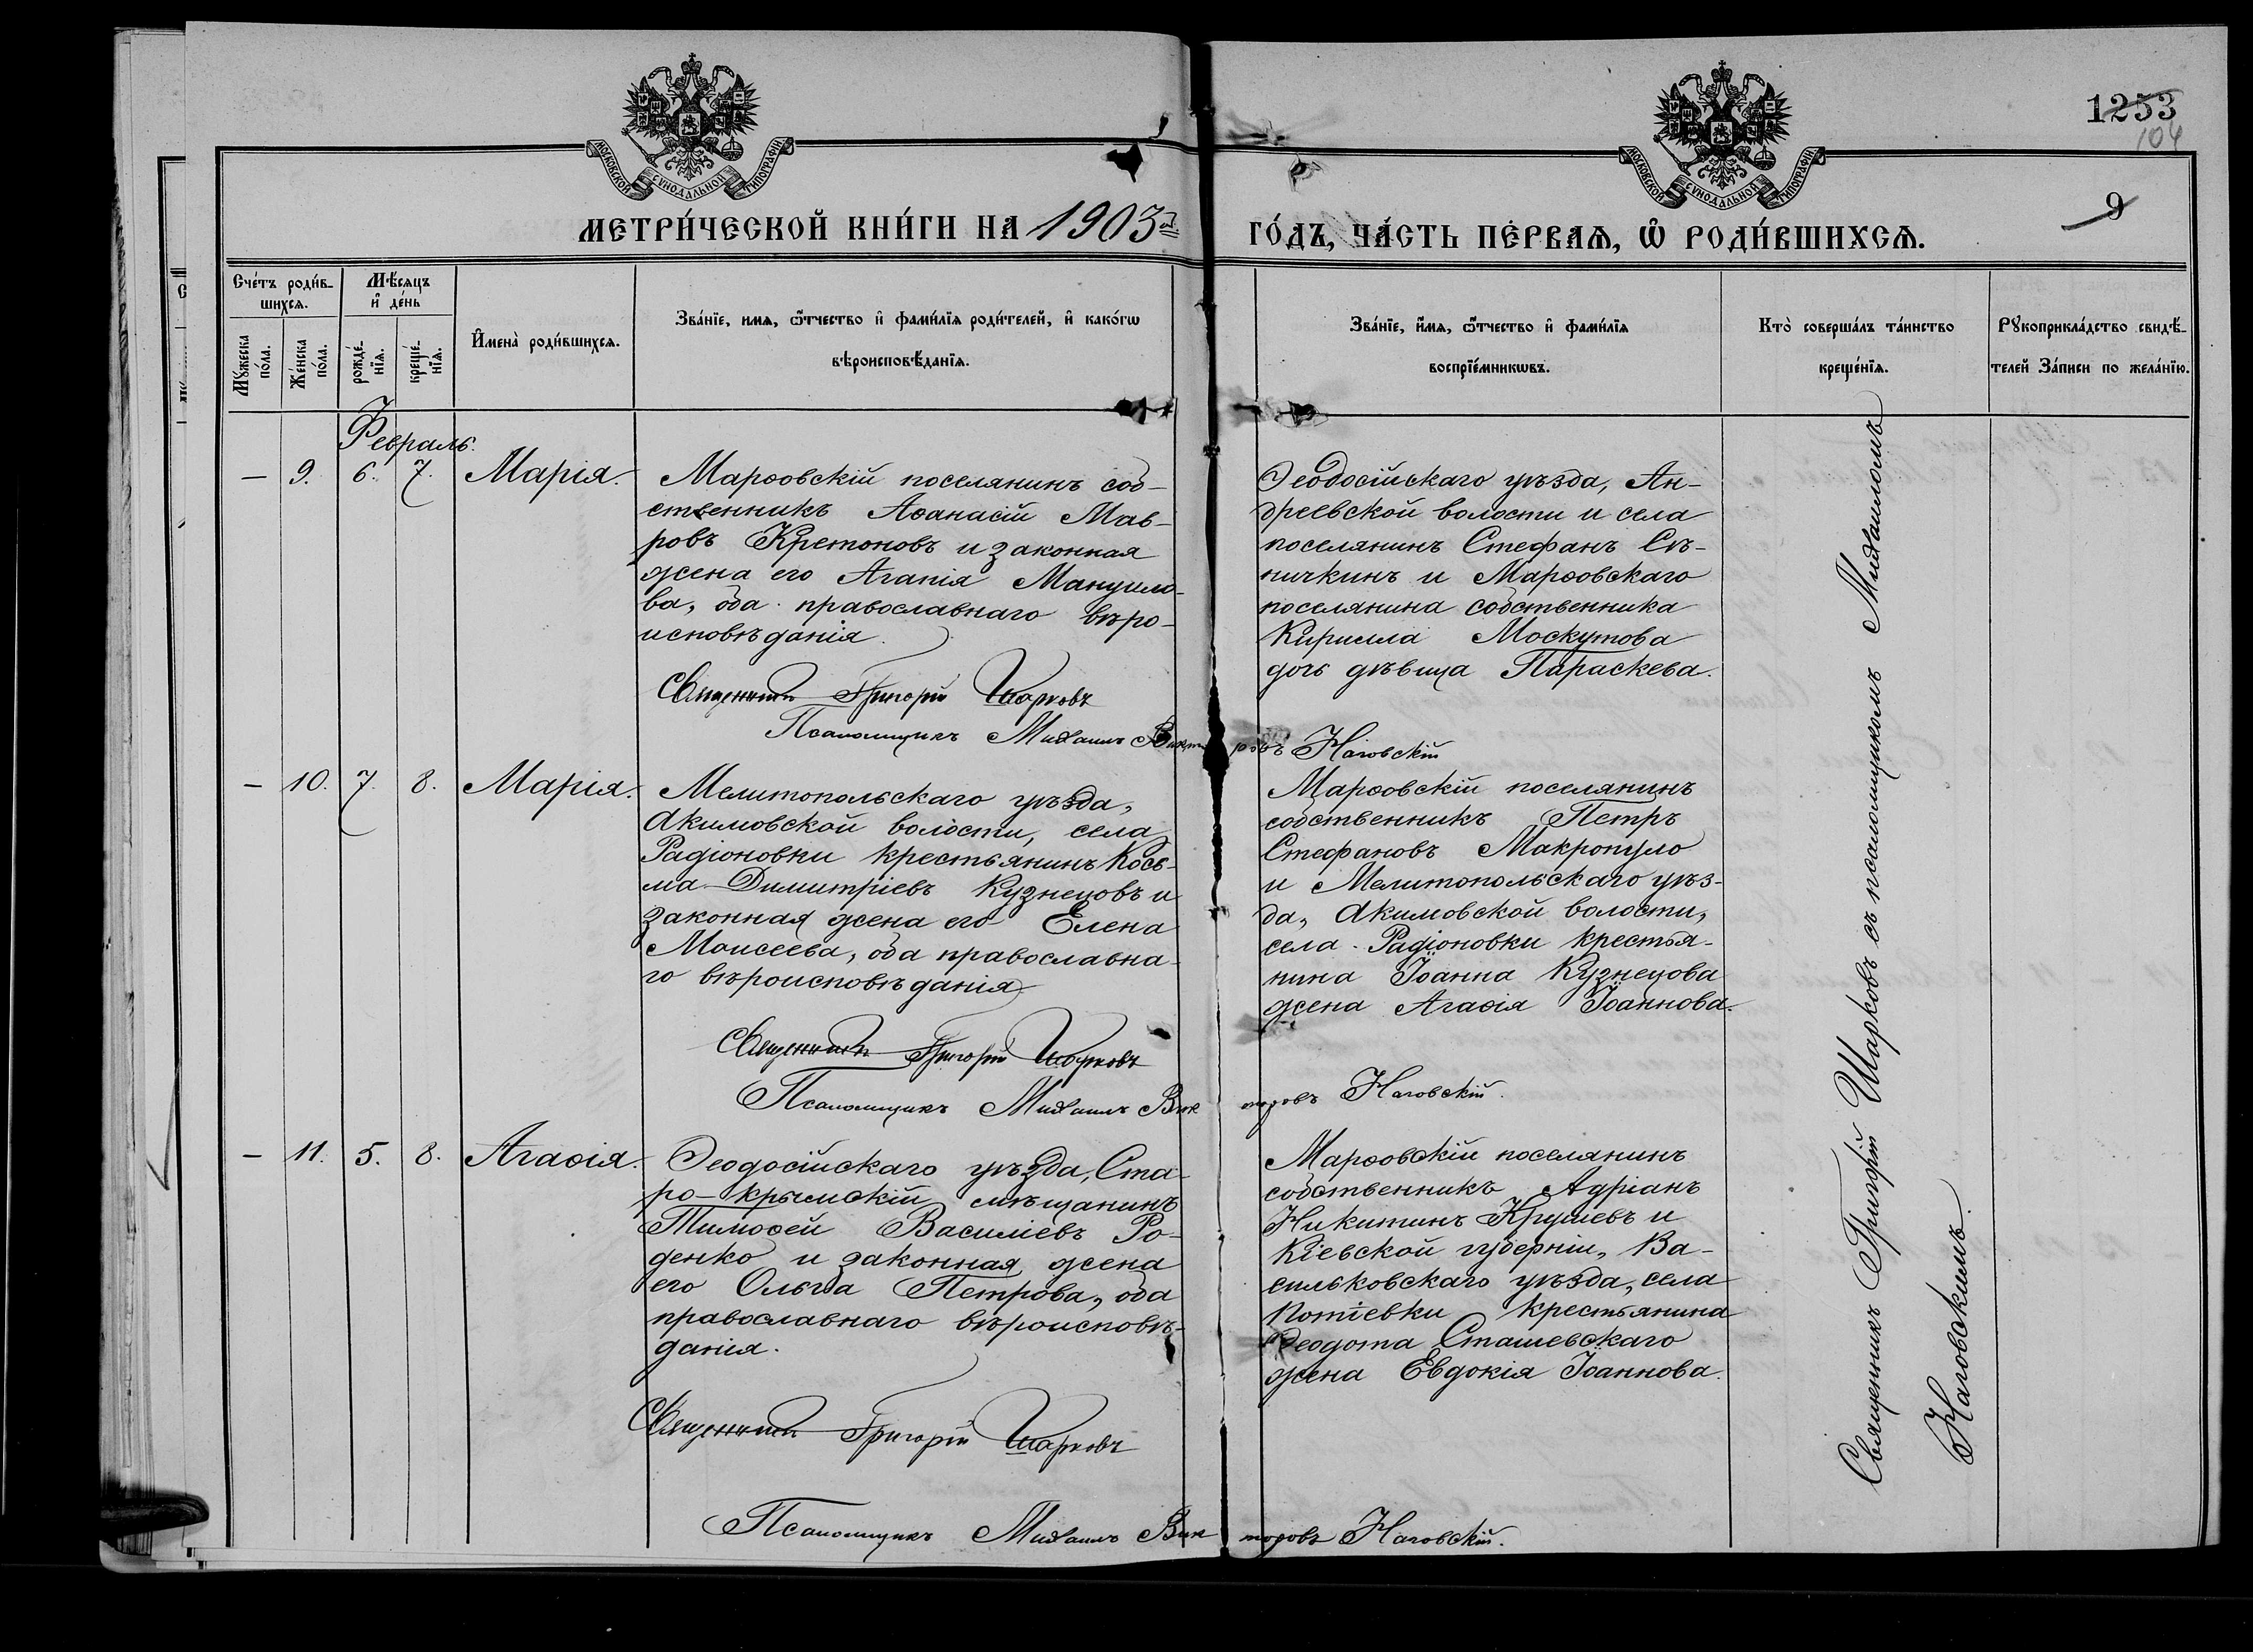 1253
104
МОСКОВСКОЙ СѴНОДАЛЬНОЙ ТИПОГРАФІИ
МОСКОВСКОЙ СѴНОДАЛЬНОЙ ТИПОГРАФІИ
9
МЕТРИ́ЧЕСКОЙ КНИ́ГИ НА 1903й
ГО́ДЪ, ЧА́СТЬ ПЕ́РВАѦ, Ѽ РОДИ́ВШИХСѦ.
Сче́тъ роди́в-
шихсѧ.
Мѣ́сѧцъ
и҆ де́нь
Мꙋ́жеска
по́ла.
Же́нска
по́ла.
рожде́-
нїѧ.
креще́-
нїѧ.
И҆мена̀ роди́вшихсѧ.
Зва́нїе, имѧ, ѻ҆́тчество и҆ фами́лїѧ роди́телей, и҆ како́гѡ
вѣроисповѣ́данїѧ.
Зва́нїе, и҆́мѧ, ѻ҆́тчество и҆ фами́лїѧ
воспрїе́мникѡвъ.
Кто̀ соверша́лъ та́инство
креще́нїѧ.
Рꙋкоприкла́дство свидѣ́-
телей За́писи по жела́нїю.
Февраль.
— 9. 6. 7. Марія.
Марѳовскій поселянинъ соб-
ственникъ Аѳанасій Мав-
ровъ Кретоновъ и законная
жена его Агапія Мануило-
ва, оба православнаго вѣро-
исповѣданія.
Священникъ Григорій Шарковъ
Псаломщикъ Михаилъ Викторовъ Наговскій
Ѳеодосійскаго уѣзда, Ан-
дреевской волости и села
поселянинъ Стефанъ Сѣ-
ничкинъ и Марѳовскаго
поселянина собственника
Кирилла Москутова
дочь дѣвица Параскева.
— 10. 7. 8. Марія.
Мелитопольскаго уѣзда,
Акимовской волости, села
Радіоновки крестьянинъ Кось-
ма Димитріевъ Кузнецовъ и
законная жена его Елена
Моисеева, оба православна-
го вѣроисповѣданія
Священникъ Григорій Шарковъ
Псаломщикъ Михаилъ Викторовъ Наговскій.
Марѳовскій поселянинъ
собственникъ Петръ
Стефановъ Макропуло
и Мелитопольскаго уѣз-
да, Акимовской волости,
села Радіоновки крестья-
нина Іоанна Кузнецова
жена Агаѳія Іоаннова.
— 11. 5. 8. Агаѳія.
Ѳеодосійскаго уѣзда, Ста-
ро-крымскій мѣщанинъ
Тимоѳей Василіевъ Ро-
денко и законная жена
его Ольга Петрова, оба
православнаго вѣроисповѣ-
данія.
Священникъ Григорій Шарковъ
Псаломщикъ Михаилъ Викторовъ Наговскій.
Марѳовскій поселянинъ
собственникъ Адріанъ
Никитинъ Крушевъ и
Кіевской губерніи, Ва-
сильковскаго уѣзда, села
Потіевки крестьянина
Ѳеодота Сташевскаго
жена Евдокія Іоаннова.
Священникъ Григорій Шарковъ съ псаломщикомъ Михаиломъ
Наговскимъ.